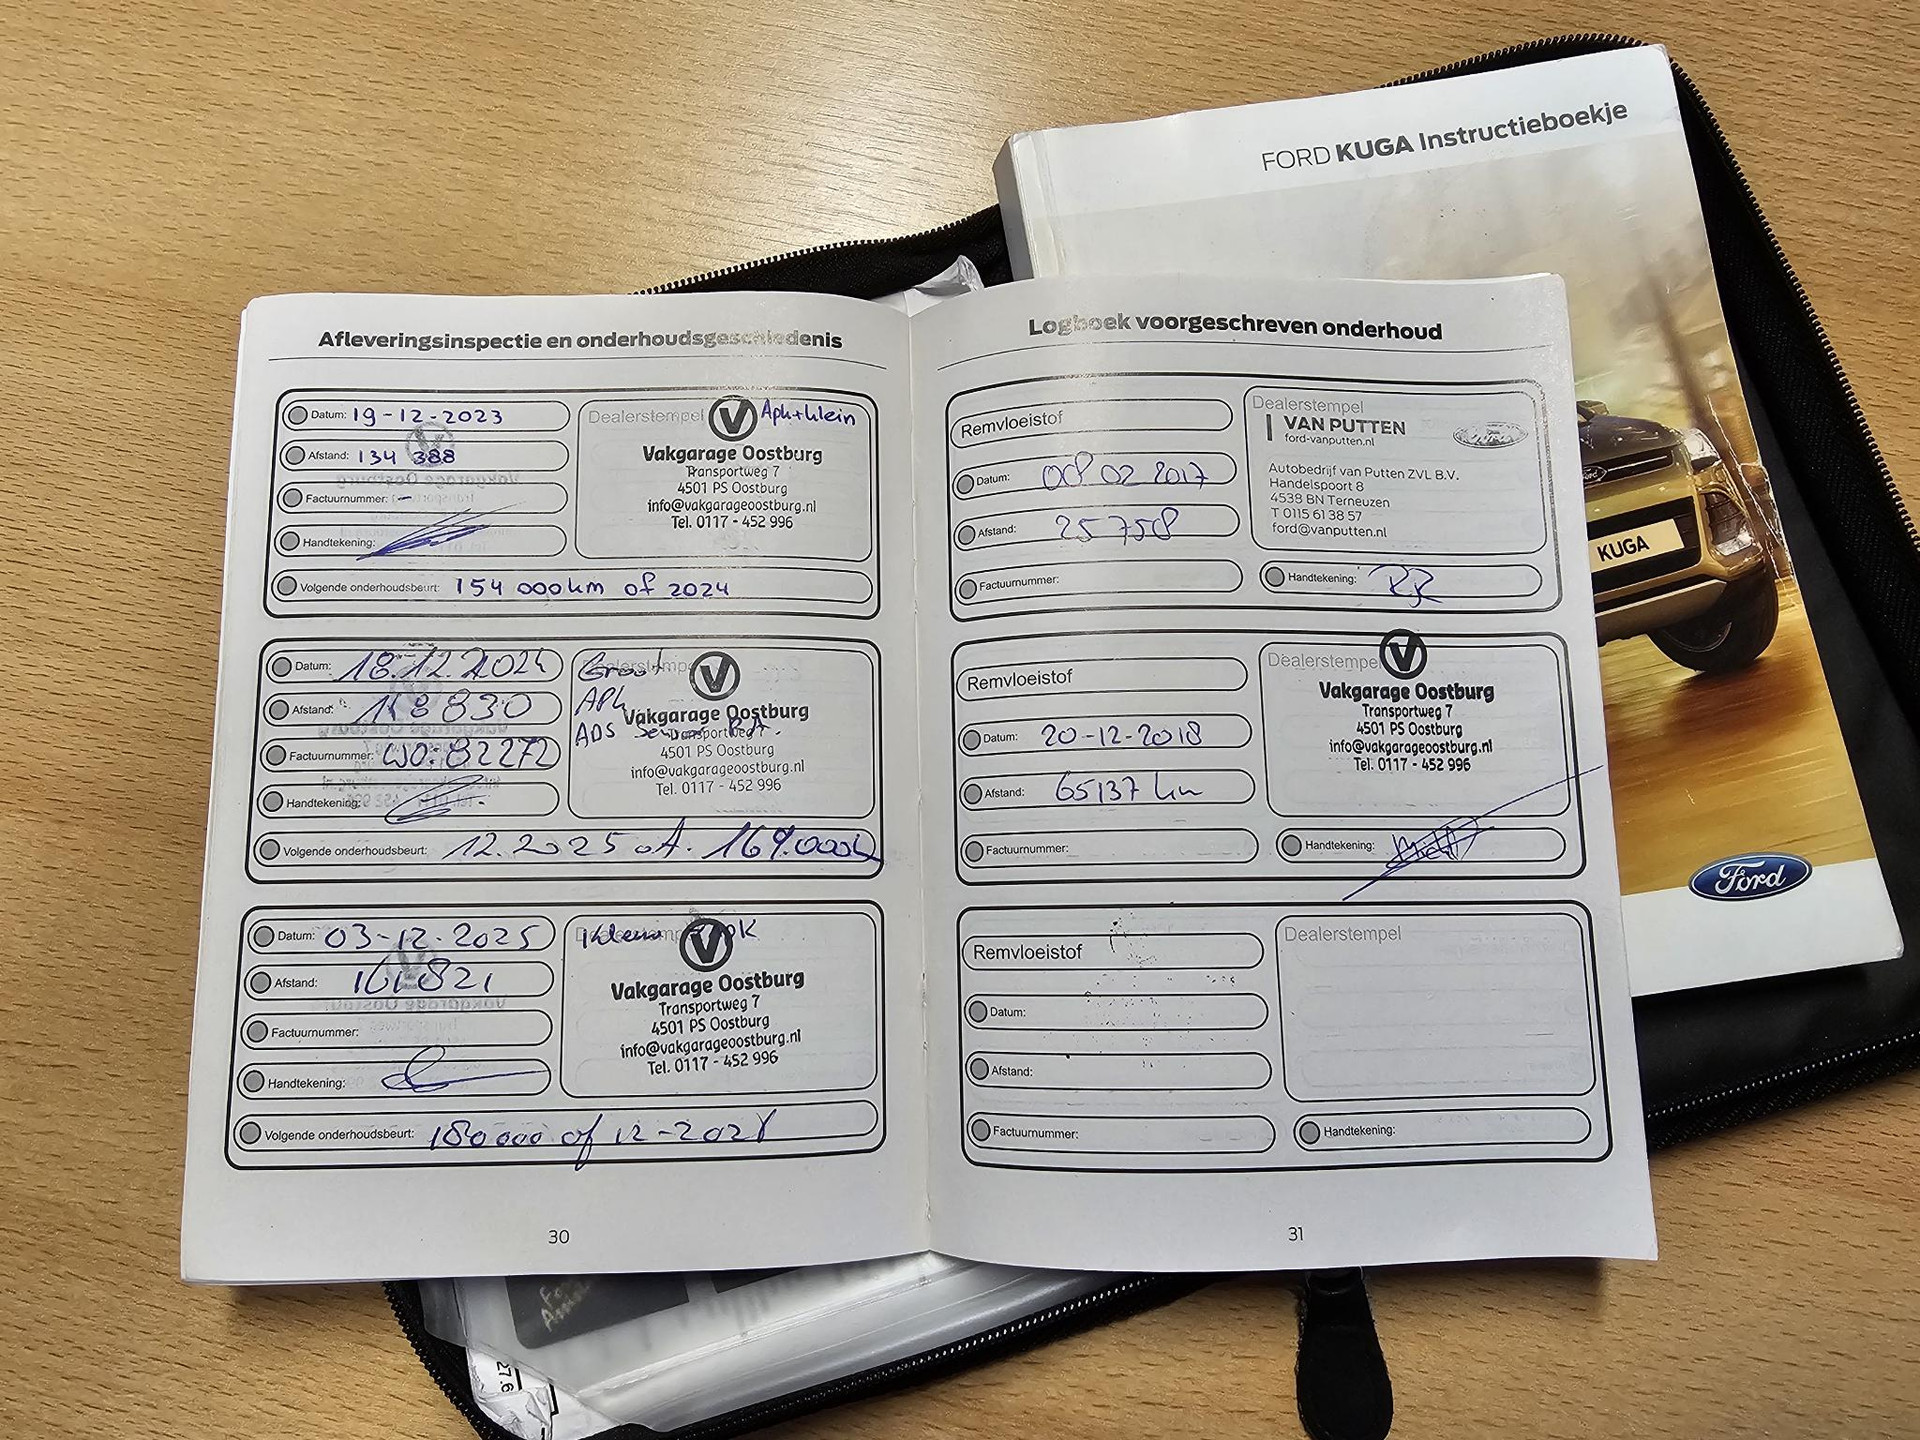 FORD KUGA Instructieboekje
KUGA
Ford
Afleveringsinspectie en onderhoudsgeschiedenis
Datum: 19-12-2023
Afstand: 134 388
Factuurnummer: -
Handtekening:
Volgende onderhoudsbeurt: 154 000km of 2024
Dealerstempel Apk+klein
Vakgarage Oostburg
Transportweg 7
4501 PS Oostburg
info@vakgarageoostburg.nl
Tel. 0117 - 452 996
Datum: 18.12.2024
Afstand: 148830
Factuurnummer: WO:82272
Handtekening:
Volgende onderhoudsbeurt: 12.2025 of. 169.000k
Dealerstempel
Groot
APk
Vakgarage Oostburg
Transportweg 7
4501 PS Oostburg
info@vakgarageoostburg.nl
Tel. 0117 - 452 996
Datum: 03-12-2025
Afstand: 161821
Factuurnummer:
Handtekening:
Volgende onderhoudsbeurt: 180000 of 12-202
Dealerstempel
Klein
Vakgarage Oostburg
Transportweg 7
4501 PS Oostburg
info@vakgarageoostburg.nl
Tel. 0117 - 452 996
30
Logboek voorgeschreven onderhoud
Remvloeistof
Datum: 08 02 2017
Afstand: 25 758
Factuurnummer:
Dealerstempel
VAN PUTTEN
ford-vanputten.nl
Ford
Autobedrijf van Putten ZVL B.V.
Handelspoort 8
4538 BN Terneuzen
T 0115 61 38 57
ford@vanputten.nl
Handtekening:
Remvloeistof
Datum: 20-12-2018
Afstand: 65137 km
Factuurnummer:
Dealerstempel
Vakgarage Oostburg
Transportweg 7
4501 PS Oostburg
info@vakgarageoostburg.nl
Tel. 0117 - 452 996
Handtekening:
Remvloeistof
Datum:
Afstand:
Factuurnummer:
Dealerstempel
Handtekening:
31
27.6